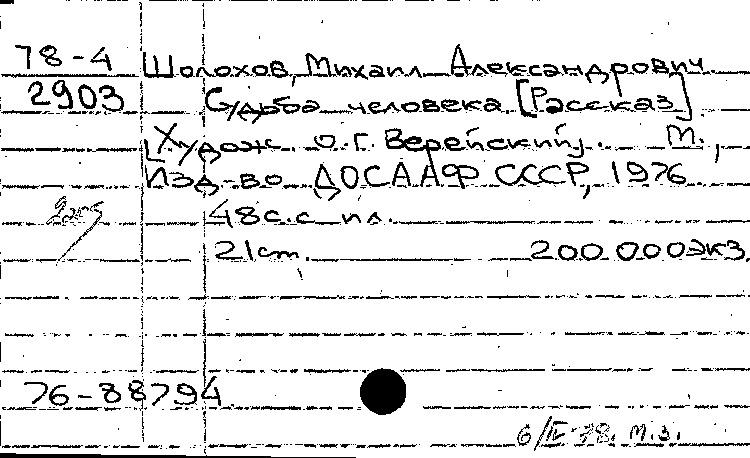 78-4 Шолохов, Михаил Александрович
2903 Судьба человека. [Рассказ].
[Худож. О.Г. Верейский]. М.,
Изд-во ДОСААФ СССР, 1976
48с. с ил.
21см. 200 000экз.
76-88794.
6/IV-78. М.З.